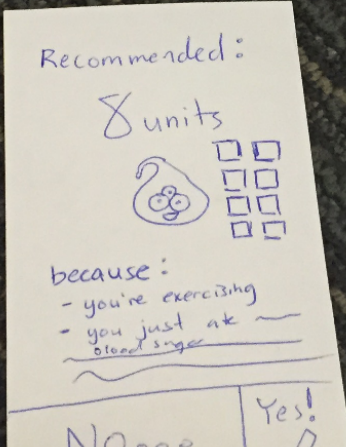 Recommended:
8 units
because:
- you're exercising
- you just ate
blood sugar
Yes!